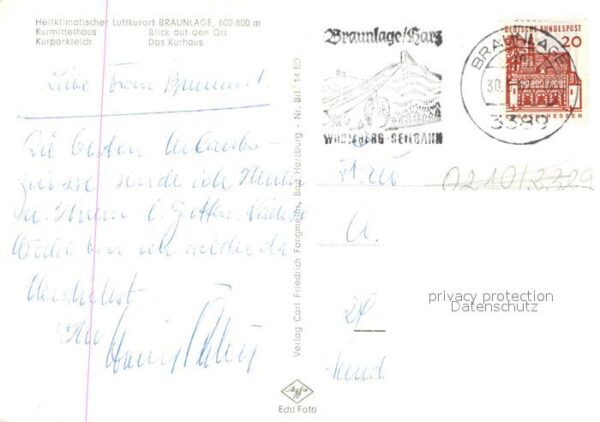 Heilklimatischer Luftkurort BRAUNLAGE, 600-800 m
Kurmittelhaus Blick auf den Ort
Kurparkteich Das Kurhaus
Liebe Frau
Die besten Urlaubs-
grüsse sende ich Ihnen
u. Ihrem l. Gatten. Nächste
Woche bin ich wieder da
Herzlichst
Ihre
Verlag Carl Friedrich Fangmeier, Bad Harzburg - Nr. Brl. 14 BO
Braunlage/Harz
WURMBERG-SEILBAHN
BRAUNLAGE
30.
3389
DEUTSCHE BUNDESPOST
20
Frau
0210/2329
privacy protection
Datenschutz
Agfa
Echt Foto